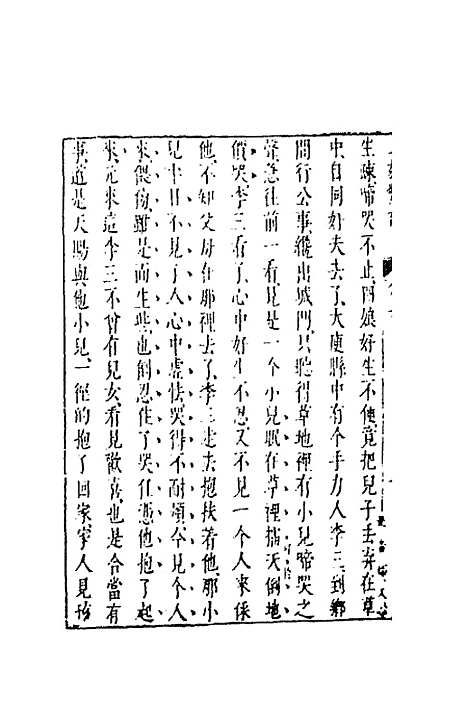 生疎啼哭不止四娘好生不便竟把兒子丟弃在草
中自同奸夫去了大庾縣中有个手力人李三到鄉
間行公事纔出城門只聽得草地裡有小兒啼哭之
聲急往前一看見是一个小兒眠在草裡擂天倒地
價哭李三看了心中好生不忍又不見一个人來保
他不知父母在那裡去了李三走去抱扶着他那小
兒半日不見了人心中虛怯哭得不耐煩今見个人
來偎傍雖是面生些也倒忍住了哭任憑他抱了起
來元來這李三不曾有兒女看見歡喜也是合當有
事道是天賜與他小兒一徑的抱了回家家人見孩